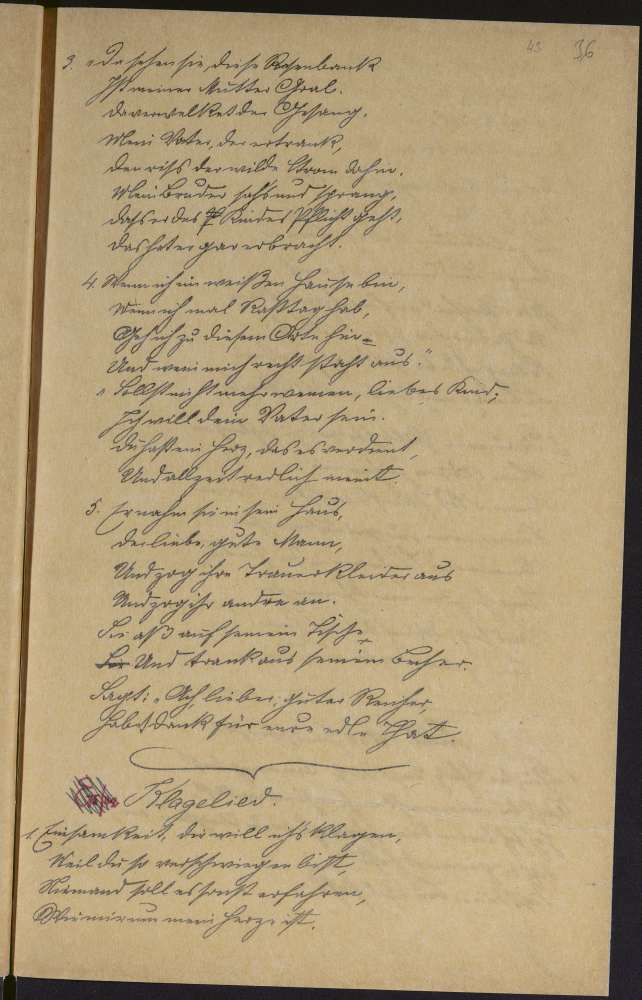 43 36
3. „Da sehen sie, diese Rasenbank
Ist meiner Mutter Grab.
da verwelket der Gesang.
Mein Vater, der ertrank,
den riss der wilde Strom dahin.
Mein Bruder sah's und sprang,
dass er des Kindes Pflicht
das hat er gar erbracht.
4. Wenn ich im weißen Hause bin,
Wenn ich mal Rasttag hab,
Geh ich zu diesem Orte hin
Und wein mich recht satt aus."
„Sollst nicht mehr weinen, liebes Kind,
Ich will dein Vater sein.
du hast ein Herz, das es verdient,
Und allzeit redlich meint.
5. Er nahm sie in sein Haus,
der liebe, gute Mann,
Und zog ihr Trauerkleider aus
Und zog ihr andre an.
Sie aß auf seinem Tische
Und trank aus seinem Becher.
Sagt: „Ach, lieber, guter Reicher,
habet Dank für eure edle That.
Klagelied.
1. Einsamkeit, dir will ich's klagen,
Weil du so verschwiegen bist,
Niemand soll es sonst erfahren,
Wie mir um mein Herze ist.